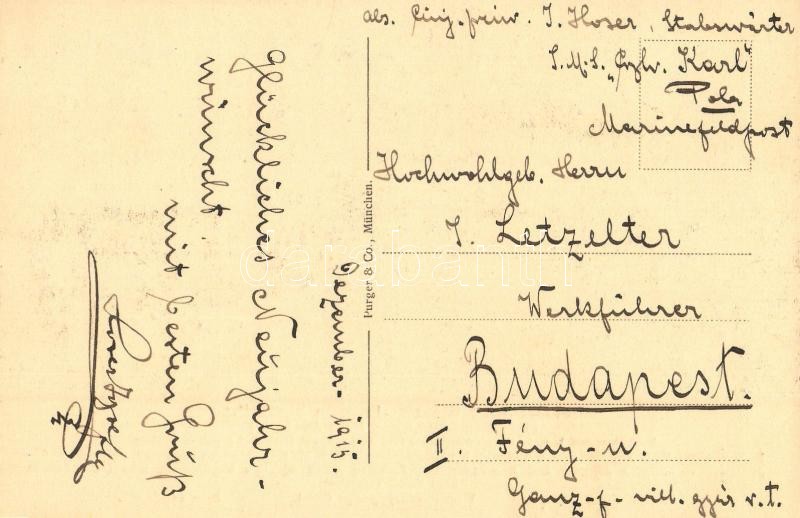 abs. Einj. freiw. J. Hoser, Stabswärter
S.M.S. "Erzh. Karl"
Pola
Marinefeldpost
Hochwohlgeb. Herrn
J. Letzelter
Werkführer
Budapest.
II. Fény-u.
Ganz-f- vill. gyár r.t.
Purger & Co., München.
Dezember - 1915.
Glückliches Neujahr-
wünscht
mit besten Gruß
darabanth